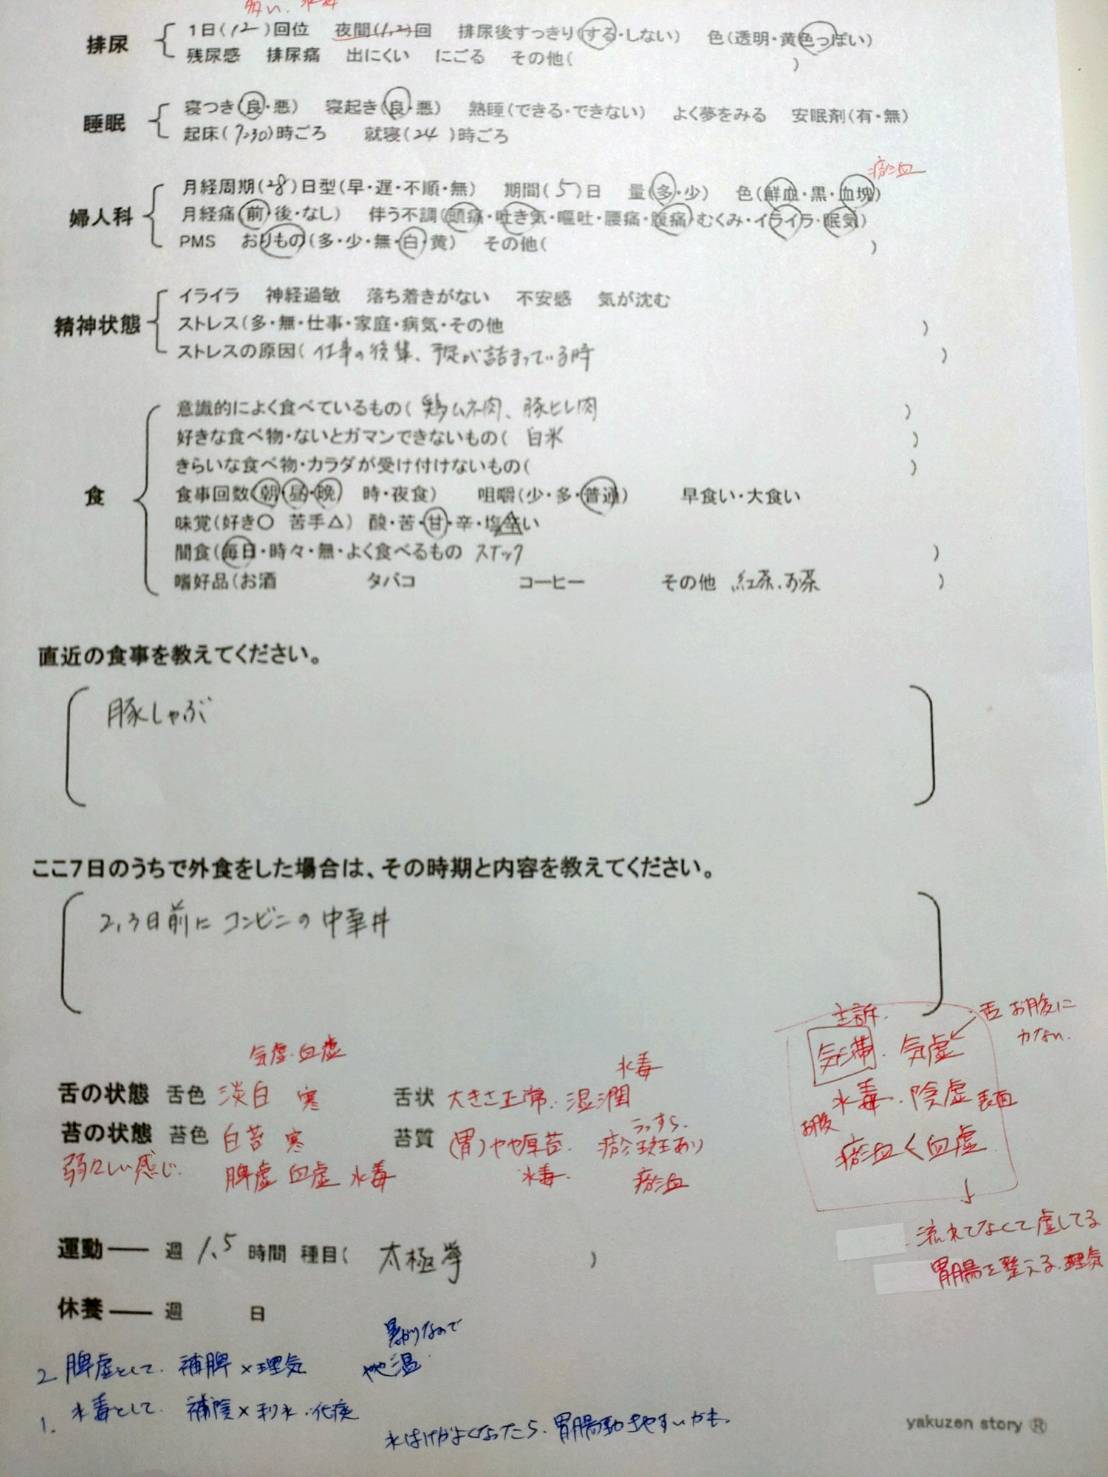 多い、水毒
排尿 1日(12)回位 夜間(1,2)回 排尿後すっきり(する・しない) 色(透明・黄色っぽい)
残尿感 排尿痛 出にくい にごる その他( )
睡眠 寝つき(良・悪) 寝起き(良・悪) 熟睡(できる・できない) よく夢をみる 安眠剤(有・無)
起床(7:30)時ごろ 就寝(24)時ごろ
瘀血
婦人科 月経周期(28)日型(早・遅・不順・無) 期間(5)日 量(多・少) 色(鮮血・黒・血塊)
月経痛(前・後・なし) 伴う不調(頭痛・吐き気・嘔吐・腰痛・腹痛・むくみ・イライラ・眠気)
PMS おりもの(多・少・無・白・黄) その他( )
精神状態 イライラ 神経過敏 落ち着きがない 不安感 気が沈む
ストレス(多・無・仕事・家庭・病気・その他 )
ストレスの原因(仕事の後輩、予定が詰まっている時 )
食 意識的によく食べているもの(鶏ムネ肉、豚ヒレ肉 )
好きな食べ物・ないとガマンできないもの(白米 )
きらいな食べ物・カラダが受け付けないもの( )
食事回数(朝・昼・晩) 時・夜食) 咀嚼(少・多・普通) 早食い・大食い
味覚(好き〇 苦手△) 酸・苦・甘・辛・塩辛い
間食(毎日・時々・無・よく食べるもの スナック )
嗜好品(お酒 タバコ コーヒー その他 紅茶、お茶 )
直近の食事を教えてください。
豚しゃぶ
ここ7日のうちで外食をした場合は、その時期と内容を教えてください。
2,3日前に コンビニの中華丼
気虚・血虚
水毒
舌の状態 舌色 淡白 寒 舌状 大きさ正常、湿潤
うっすら
苔の状態 苔色 白苔 寒 苔質 (胃)やや厚苔 瘀斑あり
弱々しい感じ 脾虚 血虚 水毒 水毒 瘀血
主訴
気滞、気虚 舌 お腹に力ない
水毒、陰虚
お腹
瘀血く血虚
流れてなくて虚してる
胃腸を整える、理気
運動 ― 週 1.5 時間 種目( 太極拳 )
休養 ― 週 日
2 脾虚として 補脾×理気
1. 水毒として 補陰×利水・化痰
水はけがよくなったら、胃腸動きやすいかも。
yakuzen story ®